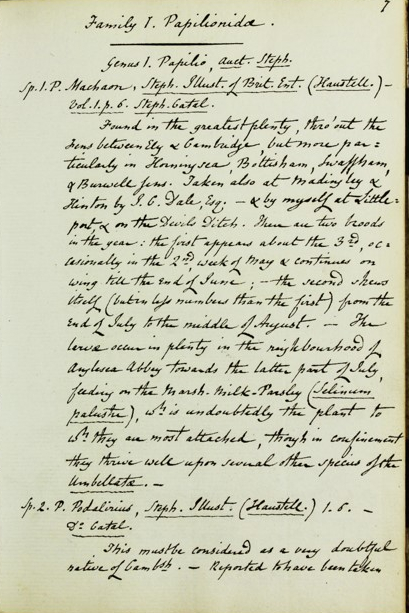 7
Family 1. Papilionidæ.
Genus 1. Papilio, auct. Steph.
Sp. 1. P. Machaon, Steph. Illust. of Brit. Ent. (Haustell.) –
Vol. 1. p. 6. Steph. Catal.
Found in the greatest plenty, thro'out the
Fens between Ely & Cambridge, but more par=
ticularly in Horningsea, Bottisham, Swaffham,
& Burwell fens. Taken also at Madingley &
Hinton by J. C. Dale, Esq. – & by myself at Little=
port, & on the Devils Ditch. There are two broods
in the year: the first appears about the 3rd, oc=
casionally in the 2nd, week of May & continues on
wing till the end of June; – the second shews
itself (but in less numbers than the first) from the
end of July to the middle of August. – The
larvæ occur in plenty in the neighbourhood of
Anglesea Abbey towards the latter part of July,
feeding on the Marsh-Milk-Parsley (Selinum
palustre), wh. is undoubtedly the plant to
wh. they are most attached, though in confinement
they thrive well upon several other species of the
Umbellatæ. –
Sp. 2. P. Podalirius, Steph. Illust. (Haustell.) 1. 6. –
Do. Catal.
This must be considered as a very doubtful
native of Cambsh. – Reported to have been taken